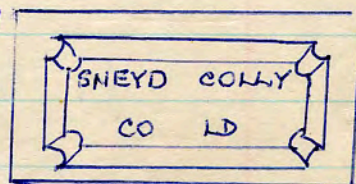 SNEYD COLLY
CO LD